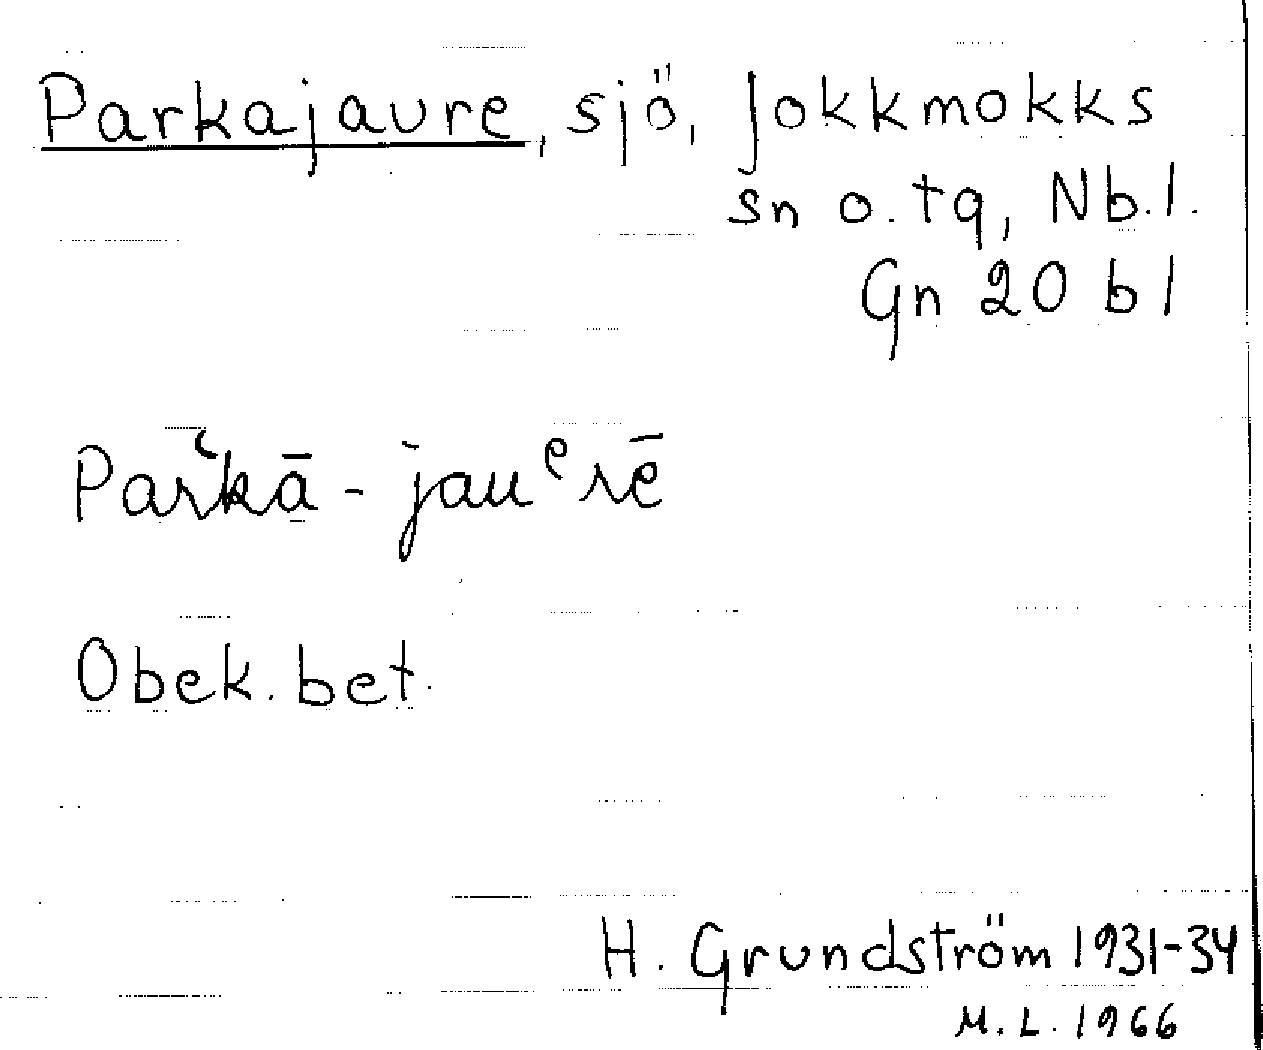 Parkajaure, sjö, Jokkmokks
sn o. tg, Nb. l.
Gn 20 b l
Par̆kā-jauᵉrē
Obek. bet.
H. Grundström 1931-34
M. L. 1966